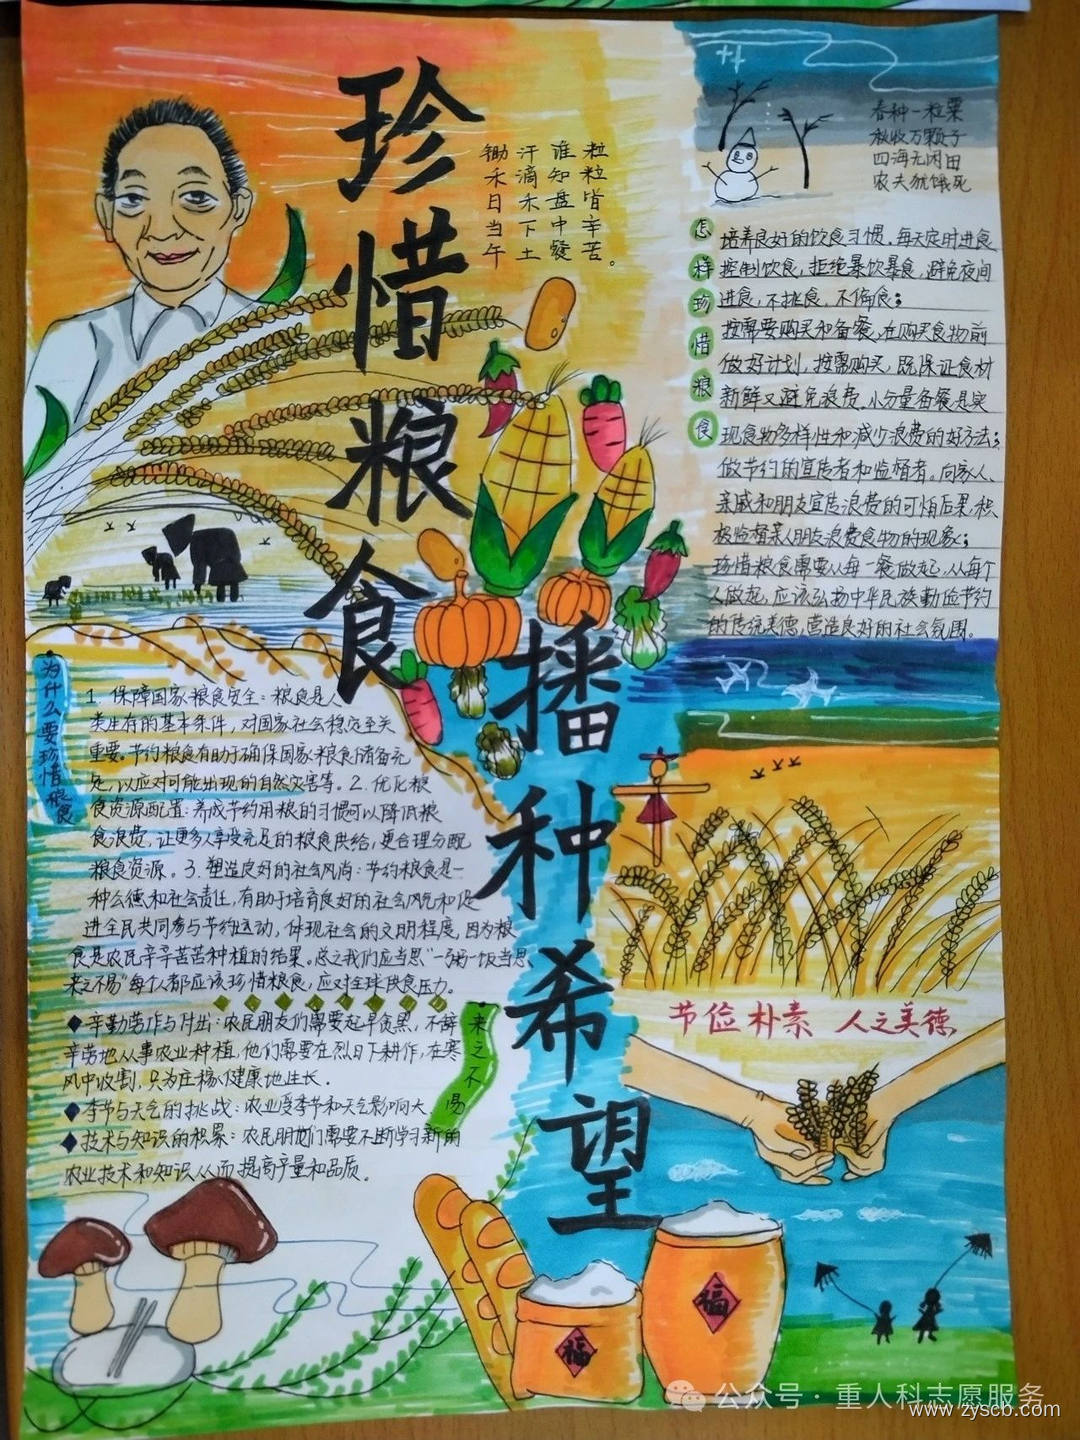 珍惜粮食
播种希望
锄禾日当午
汗滴禾下土
谁知盘中餐
粒粒皆辛苦。
春种一粒粟
秋收万颗子
四海无闲田
农夫犹饿死
怎样珍惜粮食
培养良好的饮食习惯。每天定时进食
控制饮食，拒绝暴饮暴食，避免夜间
进食，不挑食，不偏食；
按需要购买和备餐，在购买食物前
做好计划，按需购买，既保证食材
新鲜又避免浪费。小分量备餐是实
现食物多样性和减少浪费的好方法；
做节约的宣传者和监督者。向家人、
亲戚和朋友宣传浪费的可怕后果，积
极监督亲人朋友浪费食物的现象；
珍惜粮食需要从每一餐做起，从每个
人做起，应该弘扬中华民族勤俭节约
的传统美德，营造良好的社会氛围。
为什么要珍惜粮食
1. 保障国家粮食安全：粮食是人
类生存的基本条件，对国家社会稳定至关
重要。节约粮食有助于确保国家粮食储备充
足，以应对可能出现的自然灾害等。2. 优化粮
食资源配置：养成节约用粮的习惯可以降低粮
食浪费，让更多人享受充足的粮食供给，更合理分配
粮食资源。3. 塑造良好的社会风尚：节约粮食是一
种公德和社会责任，有助于培育良好的社会风气和促
进全民共同参与节约运动，体现社会的文明程度，因为粮
食是农民辛辛苦苦种植的结果。总之我们应当思“一粥一饭当思
来之不易”每个人都应该珍惜粮食，应对全球民食压力。
来之不易
辛勤劳作与付出：农民朋友们需要起早贪黑，不辞
辛劳地从事农业种植，他们需要在烈日下耕作，在寒
风中收割，只为庄稼健康地生长．
季节与天气的挑战：农业受季节和天气影响大．
技术与知识的积累：农民朋们需要不断学习新的
农业技术和知识从而提高产量和品质。
节俭朴素 人之美德
福
福
公众号·重人科志愿服务
www.zyscb.com